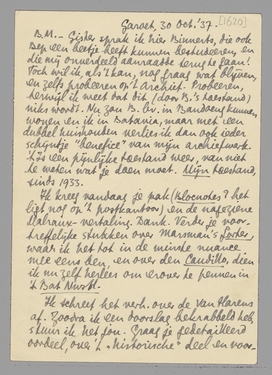 Garoet, 30 Oct. '37. [1620]
B.M. - Gister sprak ik hier Binnerts, die ook
Bep een beetje heeft kunnen bestudeeren, en
die mij onverdeeld aanraadde terug te gaan!
Toch wil ik, als 't kan, nog graag wat blijven,
en zelfs probeeren op 't Archief. Probeeren,
terwijl ik weet dat dit (door B.'s toestand)
niks wordt. Nu zou B. bv. in Bandoeng kunnen
wonen en ik in Batavia, maar met een
dubbel huishouden verlies ik dan ook ieder
schijntje "benefice" van mijn archiefwerk.
't Is een pijnlijke toestand weer, van niet
te weten wat je doen moet. Mijn toestand,
sinds 1933.
Ik kreeg vandaag je pak (Blocnotes? het
ligt nog op 't postkantoor) en de nagezene
Malraux-vertaling. Dank. Verder je voor-
treffelijke stukken over Marsman's
waar ik het tot in de minste nuance
mee eens ben, en over den Caudillo, dien
ik nu zelf herlees om erover te pennen in
't Bat. Nwsbl.
Ik schreef het verh. over de Van Harens
af. Zoodra ik een doorslag bekrabbeld heb,
stuur ik het jou. Graag je gedetailleerd
oordeel, over 't "historische" deel en voor-